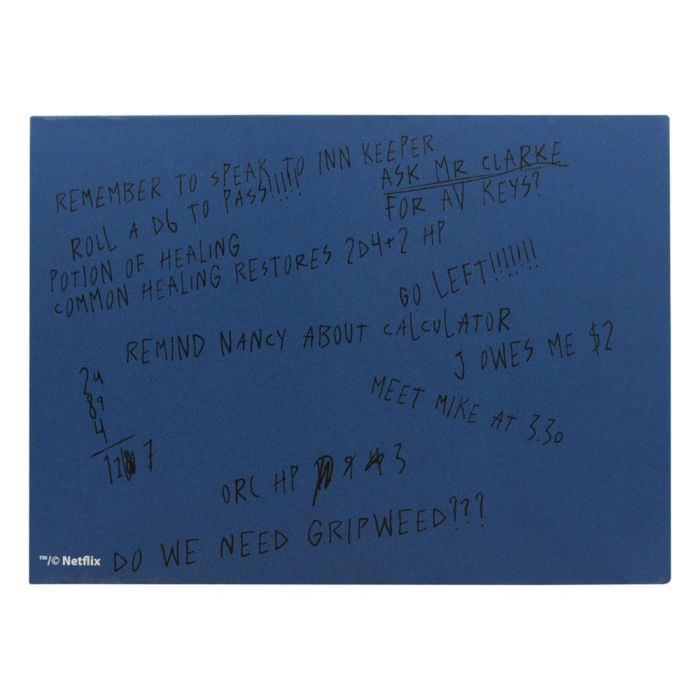 REMEMBER TO SPEAK TO INN KEEPER
ROLL A D6 TO PASS!!!!!
ASK MR CLARKE
FOR AV KEYS?
POTION OF HEALING
COMMON HEALING RESTORES 2D4+2 HP
GO LEFT!!!!!!!
REMIND NANCY ABOUT CALCULATOR
J OWES ME $2
24
89
4
117
MEET MIKE AT 3.30
ORC HP 9 3
DO WE NEED GRIPWEED???
™/© Netflix